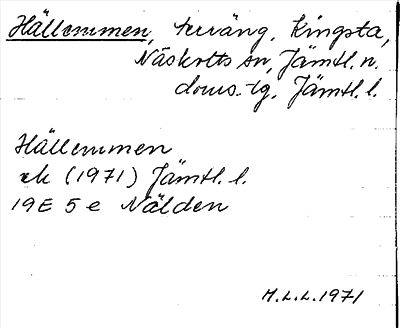 Hällemmen, terräng, Kingsta,
Näskotts sn, Jämtl. n.
doms. tg, Jämtl. l.
Hällemmen
ek (1971) Jämtl. l.
19E 5 e Nälden
M.L.L. 1971